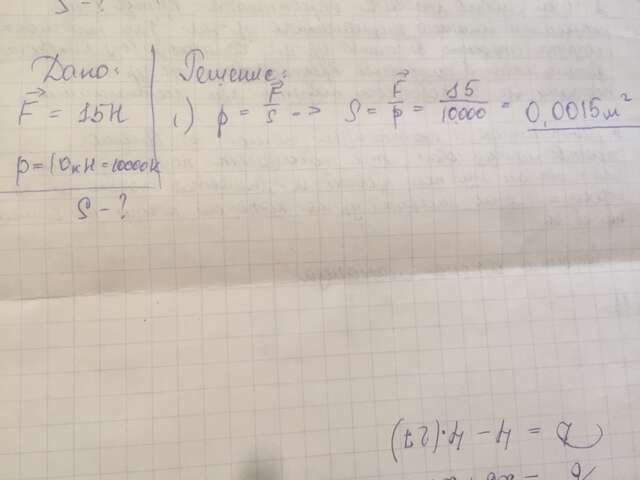 S - ?
Дано:
F = 15Н
p = 10кН = 10000Н
S - ?
Решение:
1) p = F/S -> S = F/p = 15/10000 = 0,0015м²
D = 4 - 4·(27)